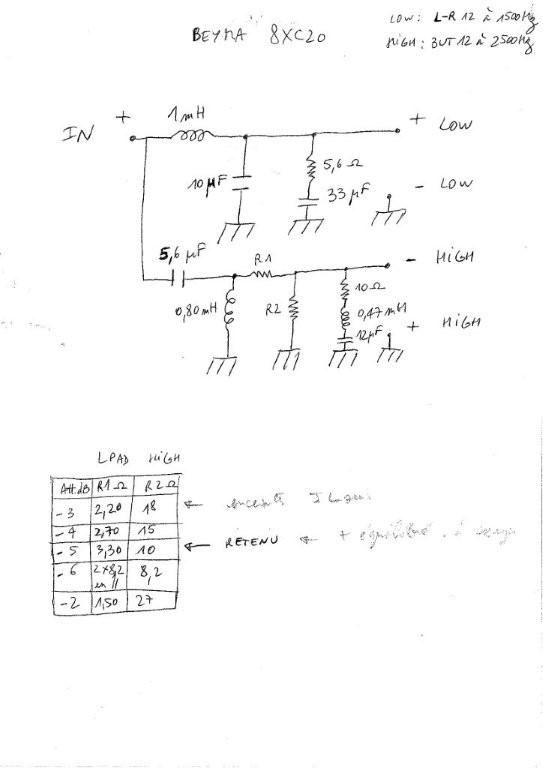 BEYMA 8XC20
LOW: L-R 12 à 1500Hz
HIGH: BUT 12 à 2500Hz
IN + 1mH + LOW
10 µF 5,6 Ω 33 µF - LOW
5,6 µF R1 - HIGH
0,80mH R2 10Ω 0,47mH 12µF + HIGH
LPAD HIGH
Att.dB R1 Ω R2 Ω
-3 2,20 18
-4 2,70 15
-5 3,30 10 ← RETENU ← + équilibré
-6 2x8,2 en // 8,2
-2 1,50 27